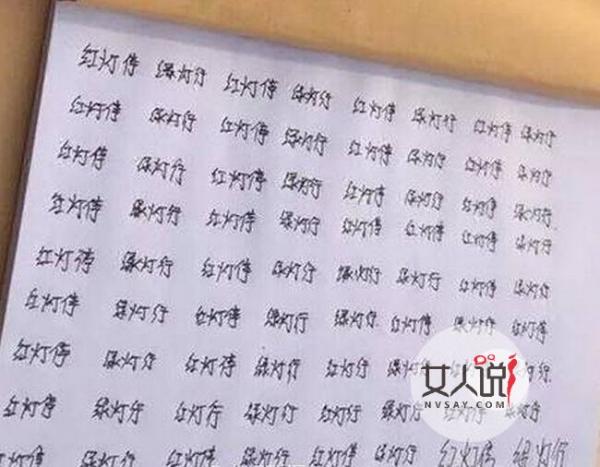 红灯停 绿灯行 红灯停 绿灯行 红灯停 绿灯行 红灯停 绿灯行
红灯停 绿灯行 红灯停 绿灯行 红灯停 绿灯行 红灯停 绿灯行
红灯停 绿灯行 红灯停 绿灯行 红灯停 绿灯行 红灯停 绿灯行
红灯停 绿灯行 红灯停 绿灯行 红灯停 绿灯行 红灯停 绿灯行
红灯停 绿灯行 红灯停 绿灯行 绿灯行 绿灯行 红灯停 绿灯行
红灯停 绿灯行 红灯停 绿灯行 绿灯行 红灯停 绿灯行 红灯停
红灯停 绿灯行 红灯停 绿灯行 红灯停 绿灯 行
红灯停 绿灯行 红灯行 绿灯行 红灯行 绿灯行
灯停 绿灯行 红灯停 绿灯行 红灯停 绿灯行 红灯停 绿灯行
女人说
NVSAY.COM